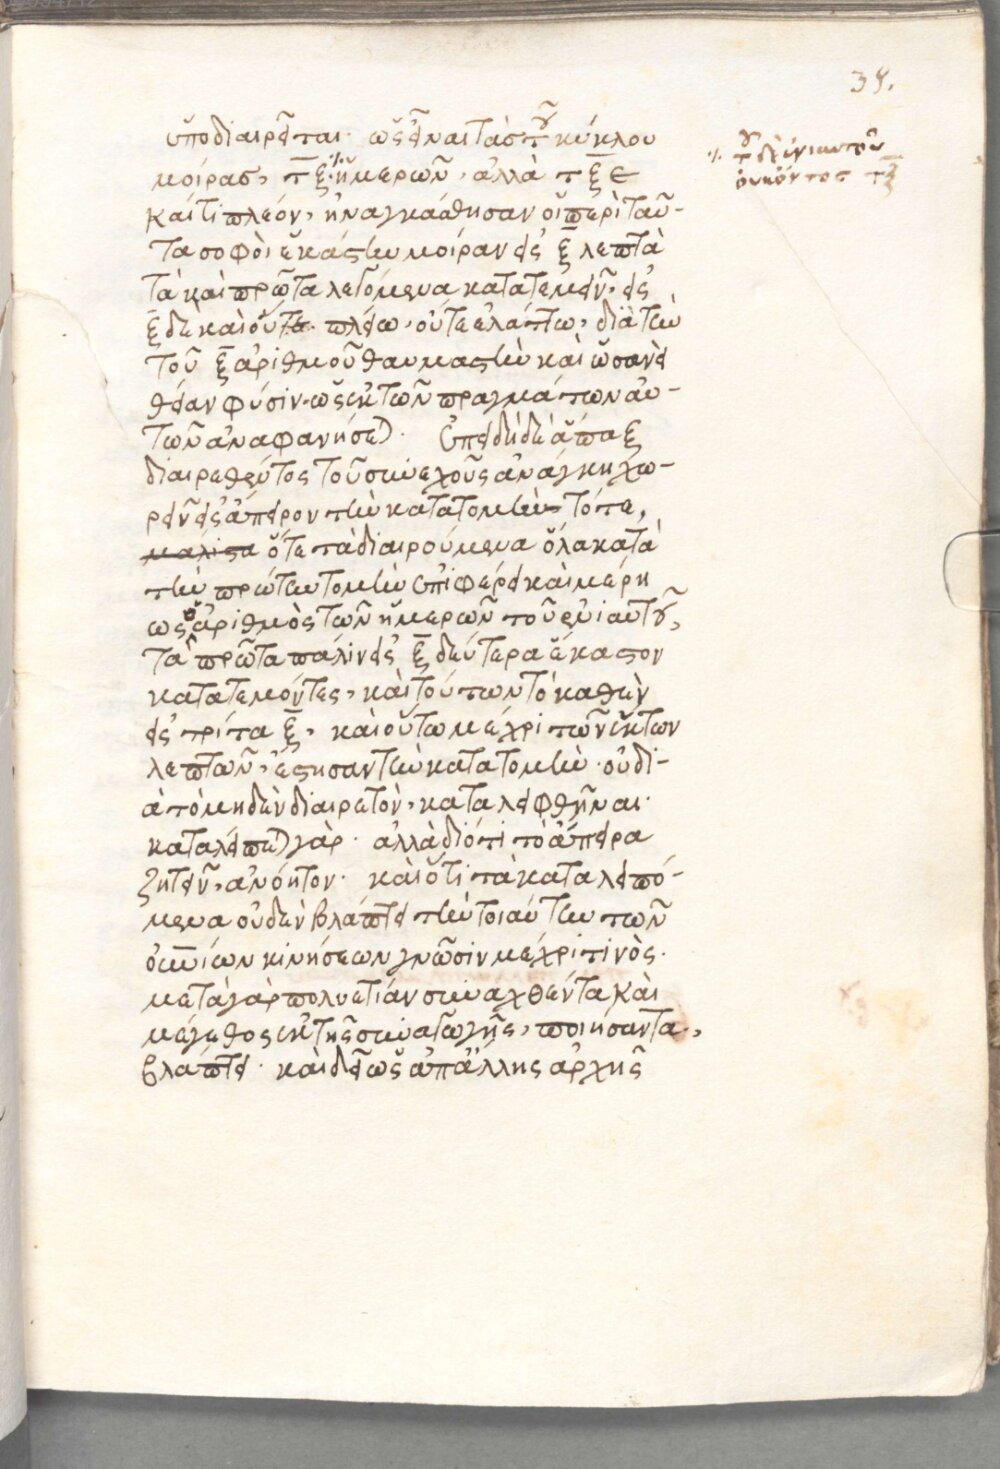 38.
ὑποδιαιρεῖται· ὡς εἶναι τὰς τοῦ κύκλου
μοίρας, τ̅ξ̅ ⁒ ἡμερῶν, ἀλλὰ τ̅ξ̅ε̅
καί τι πλεόν, ἠναγκάσθησαν οἱ περὶ ταῦ-
τα σοφοὶ ἑκάστην μοίραν εἰς ξ̅ λεπτὰ
τὰ καὶ πρῶτα λεγόμενα κατατεμεῖν, εἰς
ξ̅ δὲ καὶ οὔτε πλείω, οὔτε ἐλάττω, διὰ τὴν
τοῦ ξ̅ ἀριθμοῦ θαυμαστὴν καὶ ὡσανεὶ
θείαν φύσιν· ὡς ἐκ τῶν πραγμάτων αὐ-
τῶν ἀναφανήσεται. Ἐπειδὴ δὲ ἅπαξ
διαιρεθέντος τοῦ συνεχοῦς ἀνάγκη χω-
ρεῖν εἰς ἄπειρον τὴν κατατομὴν τότε,
μάλιστα ὅτε τὰ διαιρούμενα ὅλα κατὰ
τὴν πρώτην τομὴν ἐπιφέρει καὶ μέρη
ὡς ὁ ἀριθμὸς τῶν ἡμερῶν τοῦ ἐνιαυτοῦ,
τὰ πρῶτα πάλιν εἰς ξ̅ δεύτερα ἕκαστον
κατατεμόντες, καὶ τούτων τὸ καθὲν
εἰς τρίτα ξ̅, καὶ οὕτω μέχρι τῶν ἕκτων
λεπτῶν, ἔστησαν τὴν κατατομὴν· οὐ δι-
ὰ τὸ μηδὲν διαιρετὸν, καταλειφθῆναι·
καταλείπεται γὰρ· ἀλλὰ διότι τὸ ἄπειρα
ζητεῖν, ἀνόητον· καὶ ὅτι τὰ καταλειπό-
μενα οὐδὲν βλάπτει τὴν τοιαύτην τῶν
οὐρανίων κινήσεων γνῶσιν μέχρι τινὸς·
μετὰ γὰρ πολυετίαν συναχθέντα καὶ
μέγεθος ἐκ τῆς συναγωγῆς, ποιήσαντα,
βλάπτει· καὶ δεῖ ὡς ἀπ' ἄλλης ἀρχῆς
⁒ τοῦ δὲ ἐνιαυτοῦ
οὐκ ὄντος τ̅ξ̅